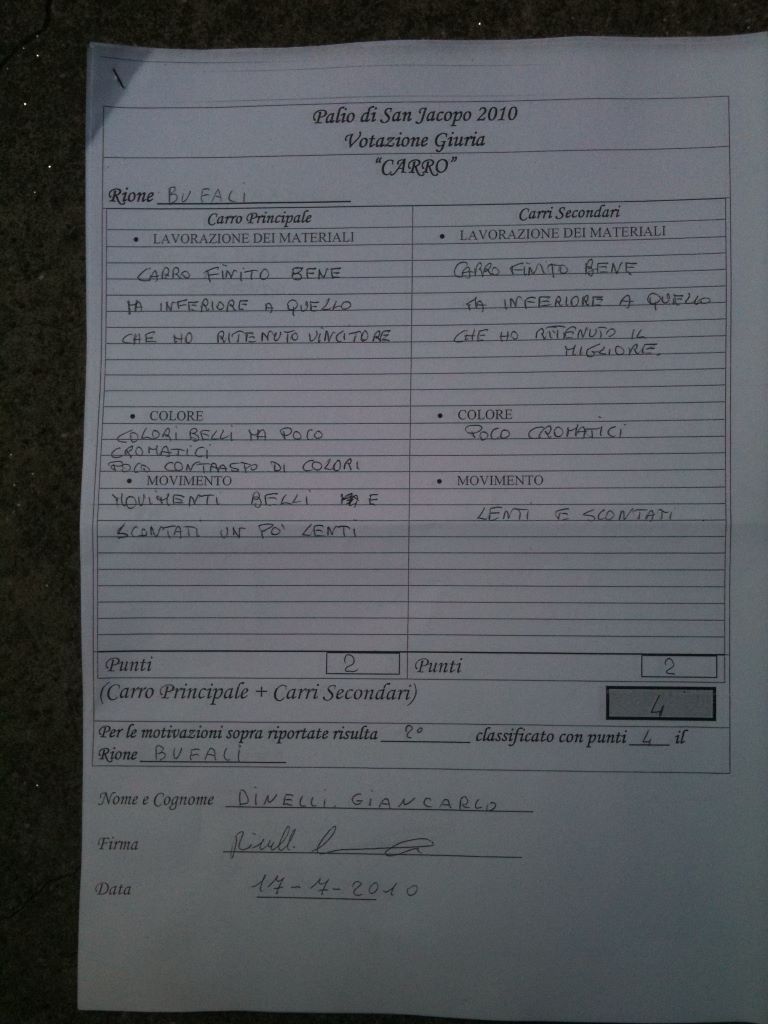 Palio di San Jacopo 2010
Votazione Giuria
"CARRO"
Rione BUFALI
Carro Principale
• LAVORAZIONE DEI MATERIALI
CARRO FINITO BENE
MA INFERIORE A QUELLO
CHE HO RITENUTO VINCITORE
• COLORE
COLORI BELLI MA POCO
CROMATICI
POCO CONTRASTO DI COLORI
• MOVIMENTO
MOVIMENTI BELLI E
SCONTATI UN PO' LENTI
Punti 2
Carri Secondari
• LAVORAZIONE DEI MATERIALI
CARRO FINITO BENE
MA INFERIORE A QUELLO
CHE HO RITENUTO IL
MIGLIORE.
• COLORE
POCO CROMATICI
• MOVIMENTO
LENTI E SCONTATI
Punti 2
(Carro Principale + Carri Secondari) 4
Per le motivazioni sopra riportate risulta 2° classificato con punti 4 il
Rione BUFALI
Nome e Cognome DINELLI GIANCARLO
Firma
Data 17-7-2010